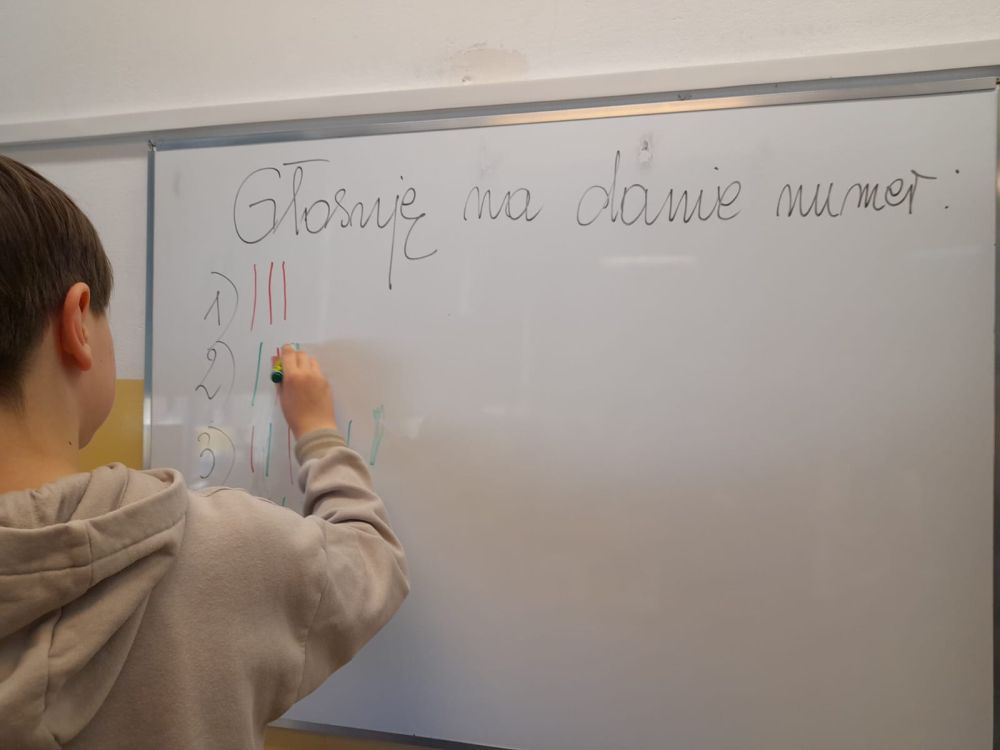 Głosuję na danie numer:
1) |||
2)
3)